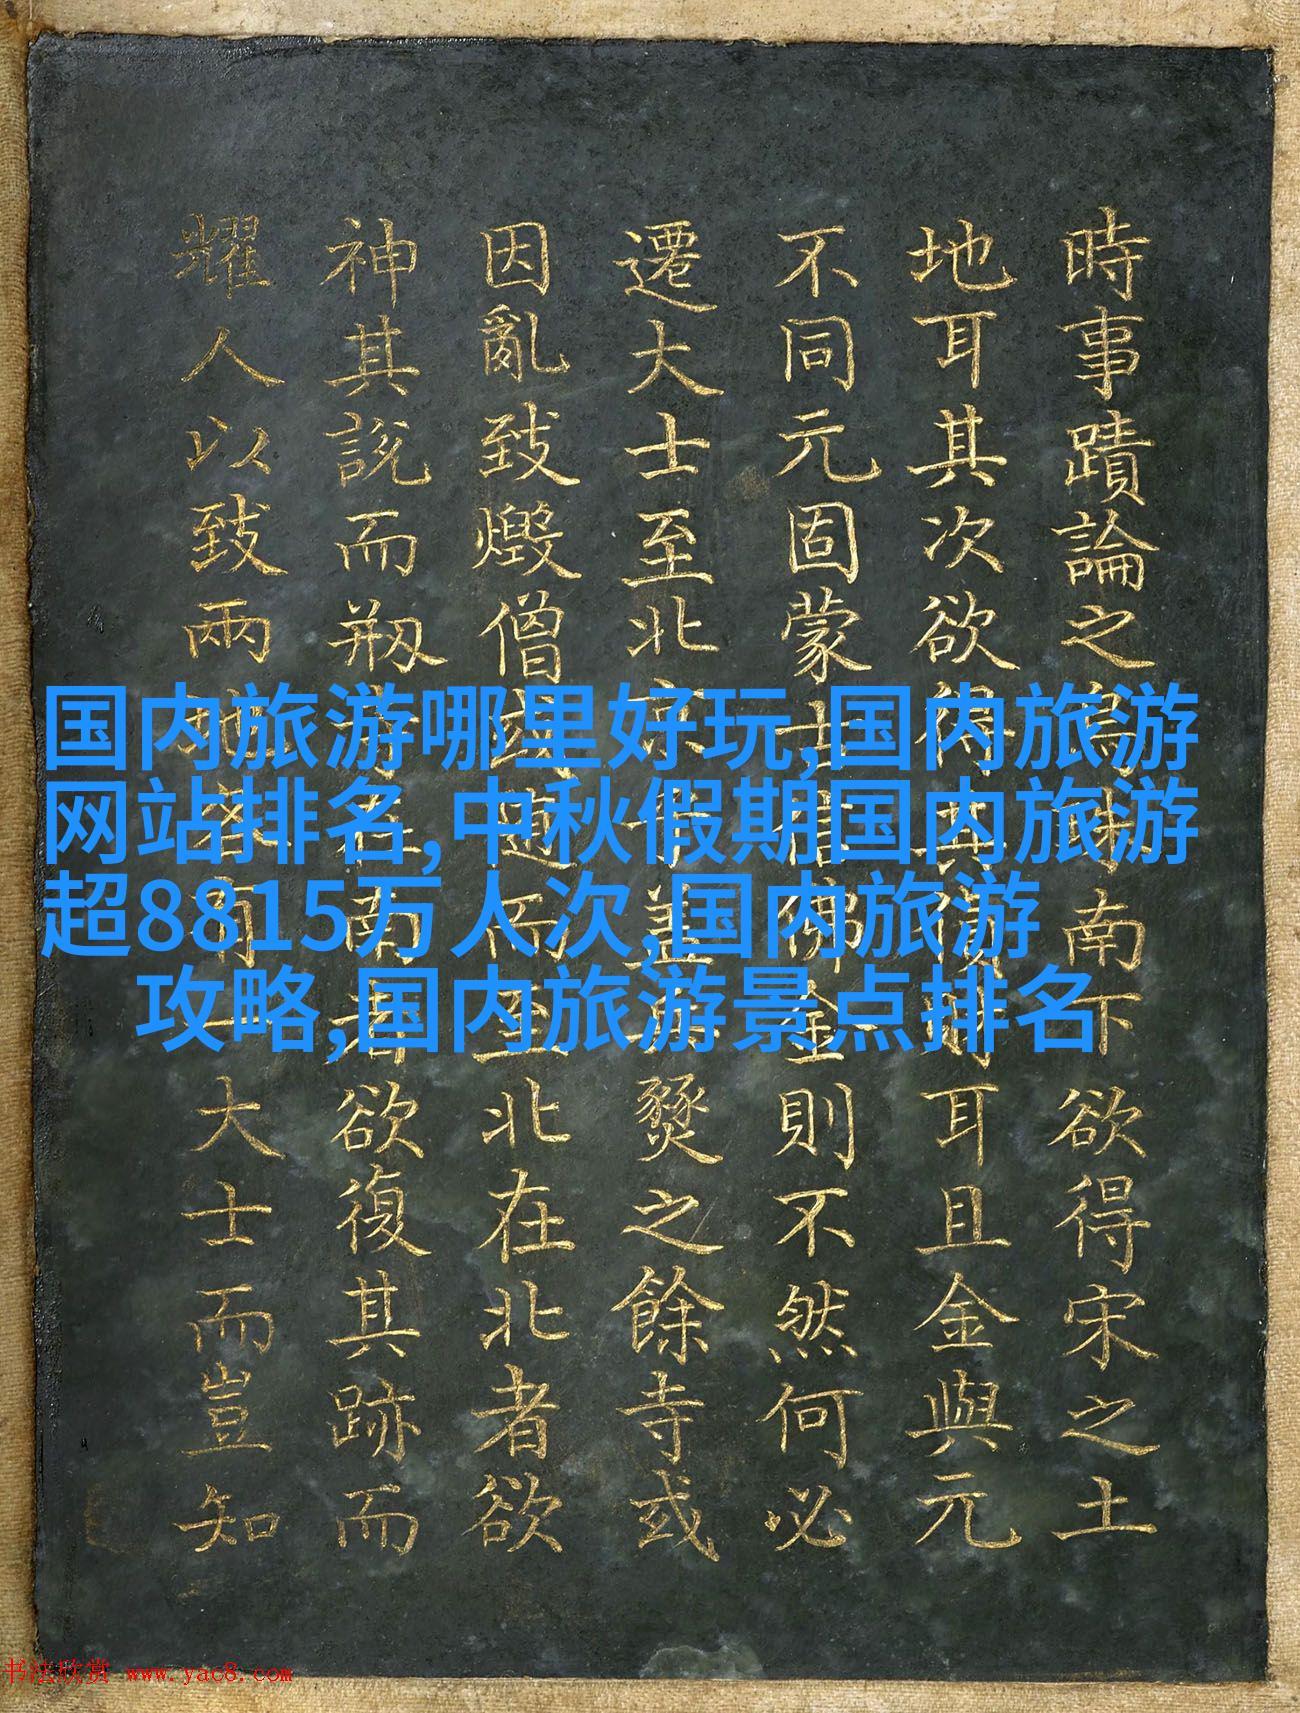 国内旅游哪里好玩,国内旅游
网站排名,中秋假期国内旅游
超8815万人次,国内旅游
攻略,国内旅游景点排名
時事蹟論之南下欲得宋之土
地耳其次欲得其耳且金與元
不同元固蒙佛金則不然何必
遷大士至北京燹之餘寺或
因亂致燬僧而至北在北者欲
神其說而剏在南者欲復其跡而
耀人以致兩地各有一大士而豈知
书法欣赏 www.yac8.com